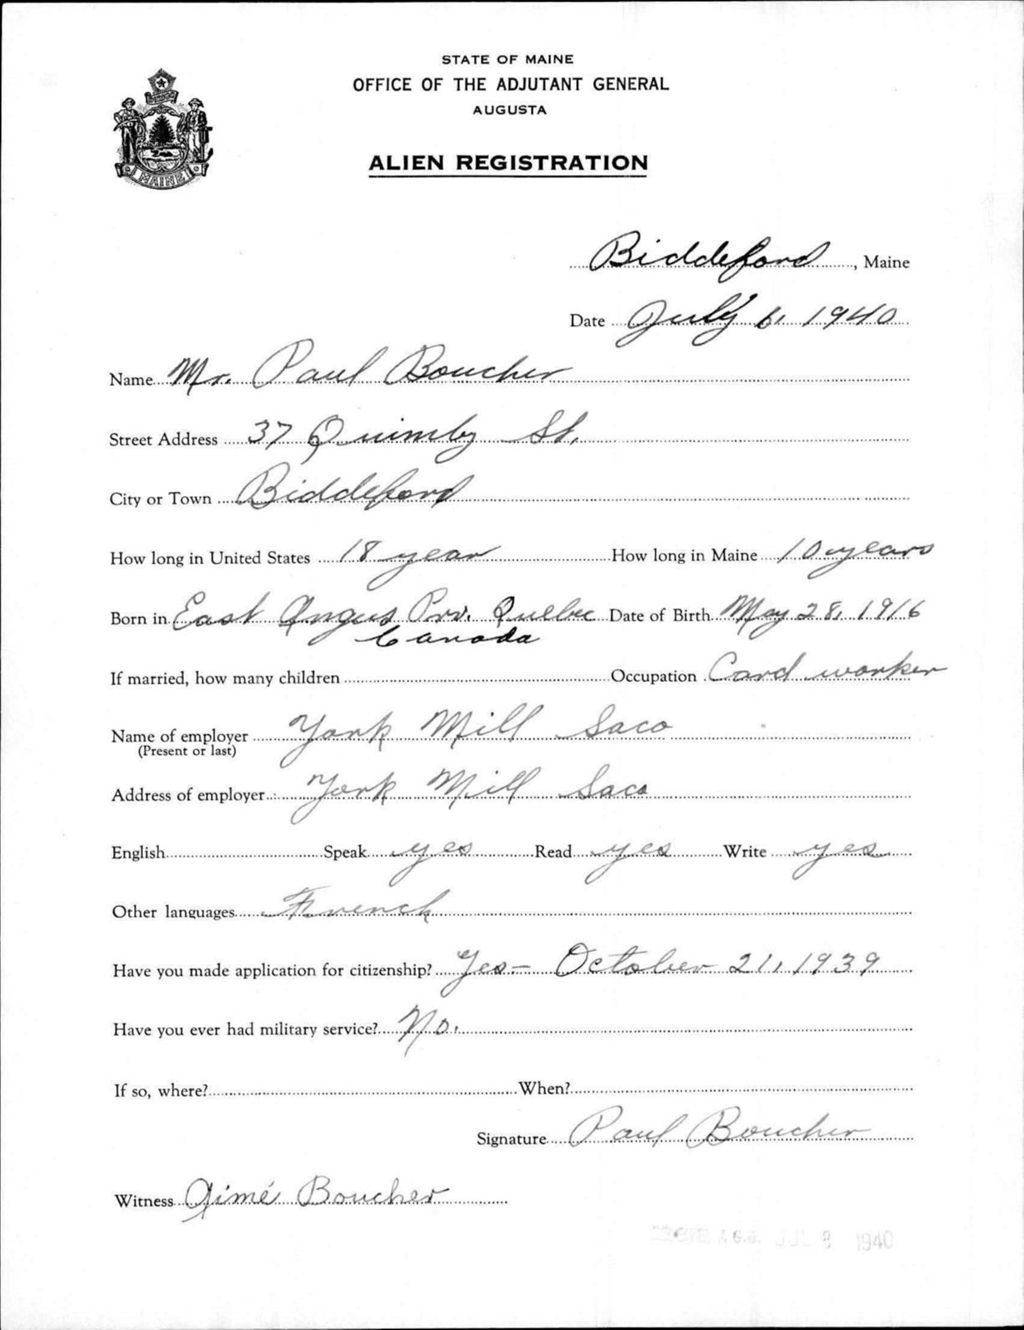 STATE OF MAINE
OFFICE OF THE ADJUTANT GENERAL
AUGUSTA
MAINE
ALIEN REGISTRATION
Biddeford, Maine
Date July 6, 1940
Name Mr. Paul Boucher
Street Address 37 Quimby St.
City or Town Biddeford
How long in United States 18 year How long in Maine 10 years
Born in East Angus Prv. Quebec Date of Birth May 28, 1916
Canada
If married, how many children Occupation Card worker
Name of employer York Mill Saco
(Present or last)
Address of employer York Mill Saco
English Speak yes Read yes Write yes
Other languages French
Have you made application for citizenship? Yes - October 21, 1939
Have you ever had military service? No.
If so, where? When?
Signature Paul Boucher
Witness Aimé Boucher
A.G.O. JUL 8 1940